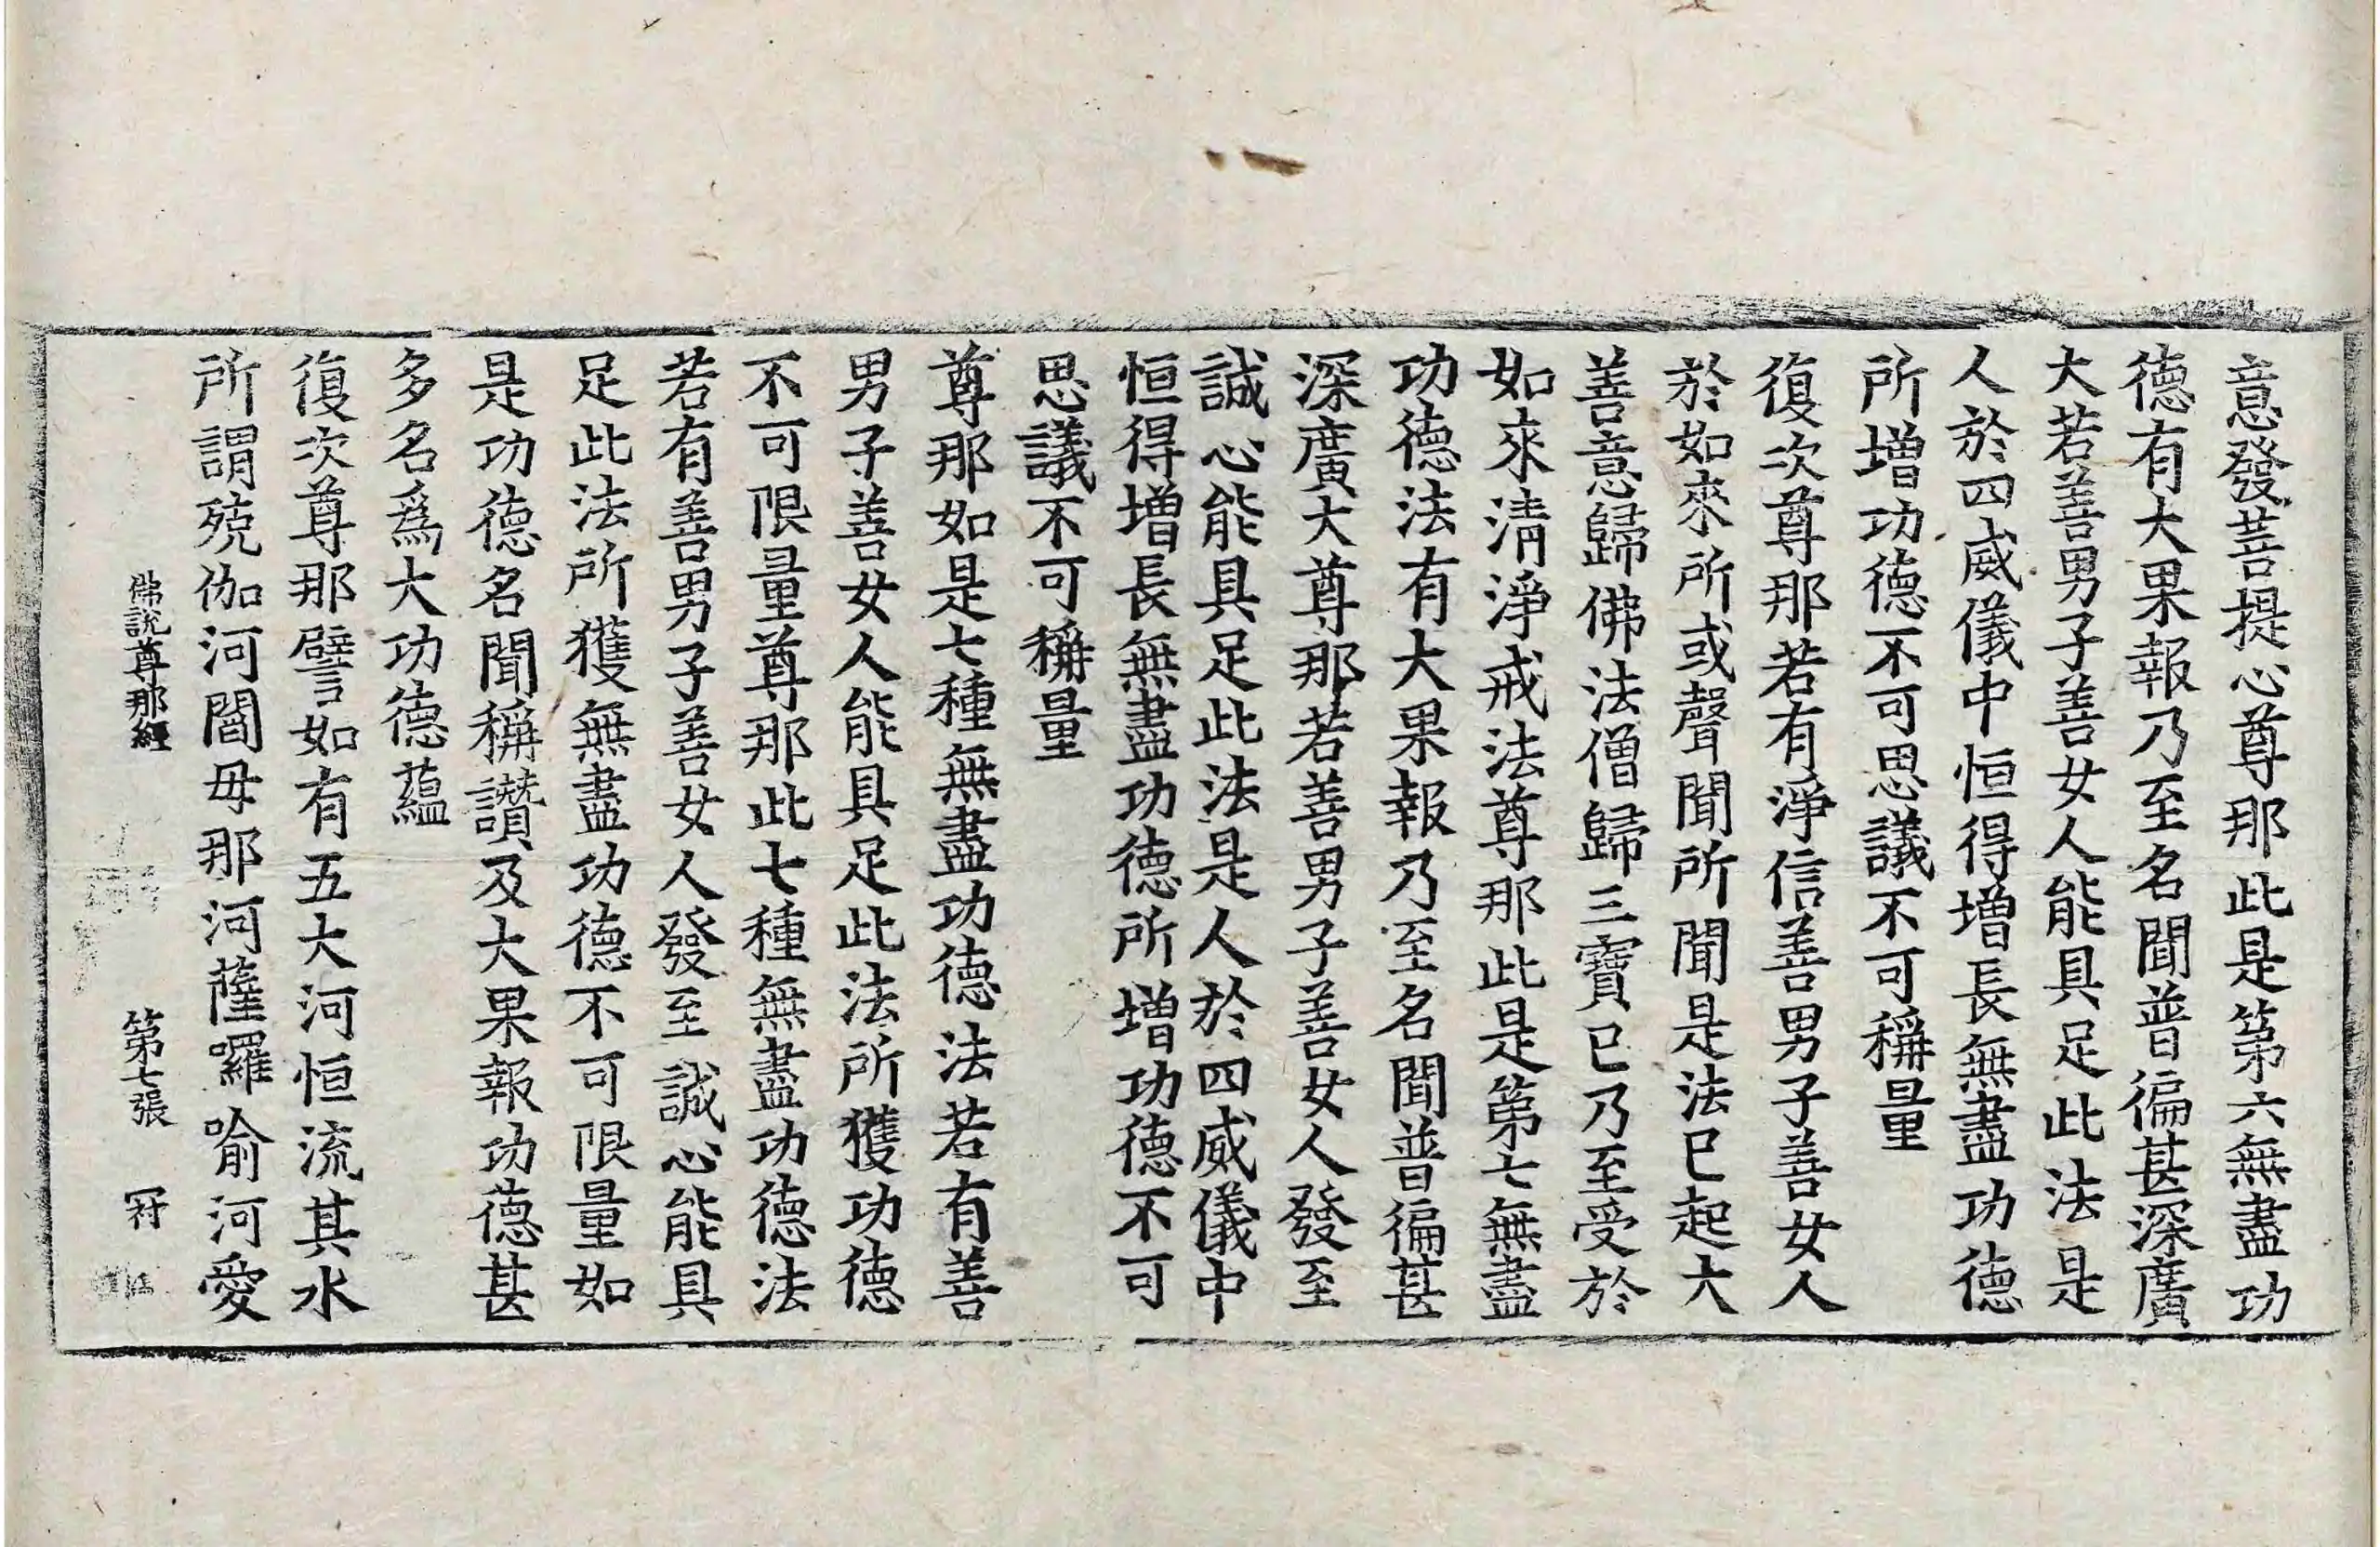 意發菩提心尊那此是第六無盡功
德有大果報乃至名聞普徧甚深廣
大若善男子善女人能具足此法是
人於四威儀中恒得增長無盡功德
所增功德不可思議不可稱量
復次尊那若有淨信善男子善女人
於如來所或聲聞所聞是法已起大
善意歸佛法僧歸三寶已乃至受於
如來清淨戒法尊那此是第七無盡
功德法有大果報乃至名聞普徧甚
深廣大尊那若善男子善女人發至
誠心能具足此法是人於四威儀中
恒得增長無盡功德所增功德不可
思議不可稱量
尊那如是七種無盡功德法若有善
男子善女人能具足此法所獲功德
不可限量尊那此七種無盡功德法
若有善男子善女人發至誠心能具
足此法所獲無盡功德不可限量如
是功德名聞稱讚及大果報功德甚
多名為大功德蘊
復次尊那譬如有五大河恒流其水
所謂殑伽河閻毋那河薩囉喻河愛
佛說尊那經 第七張